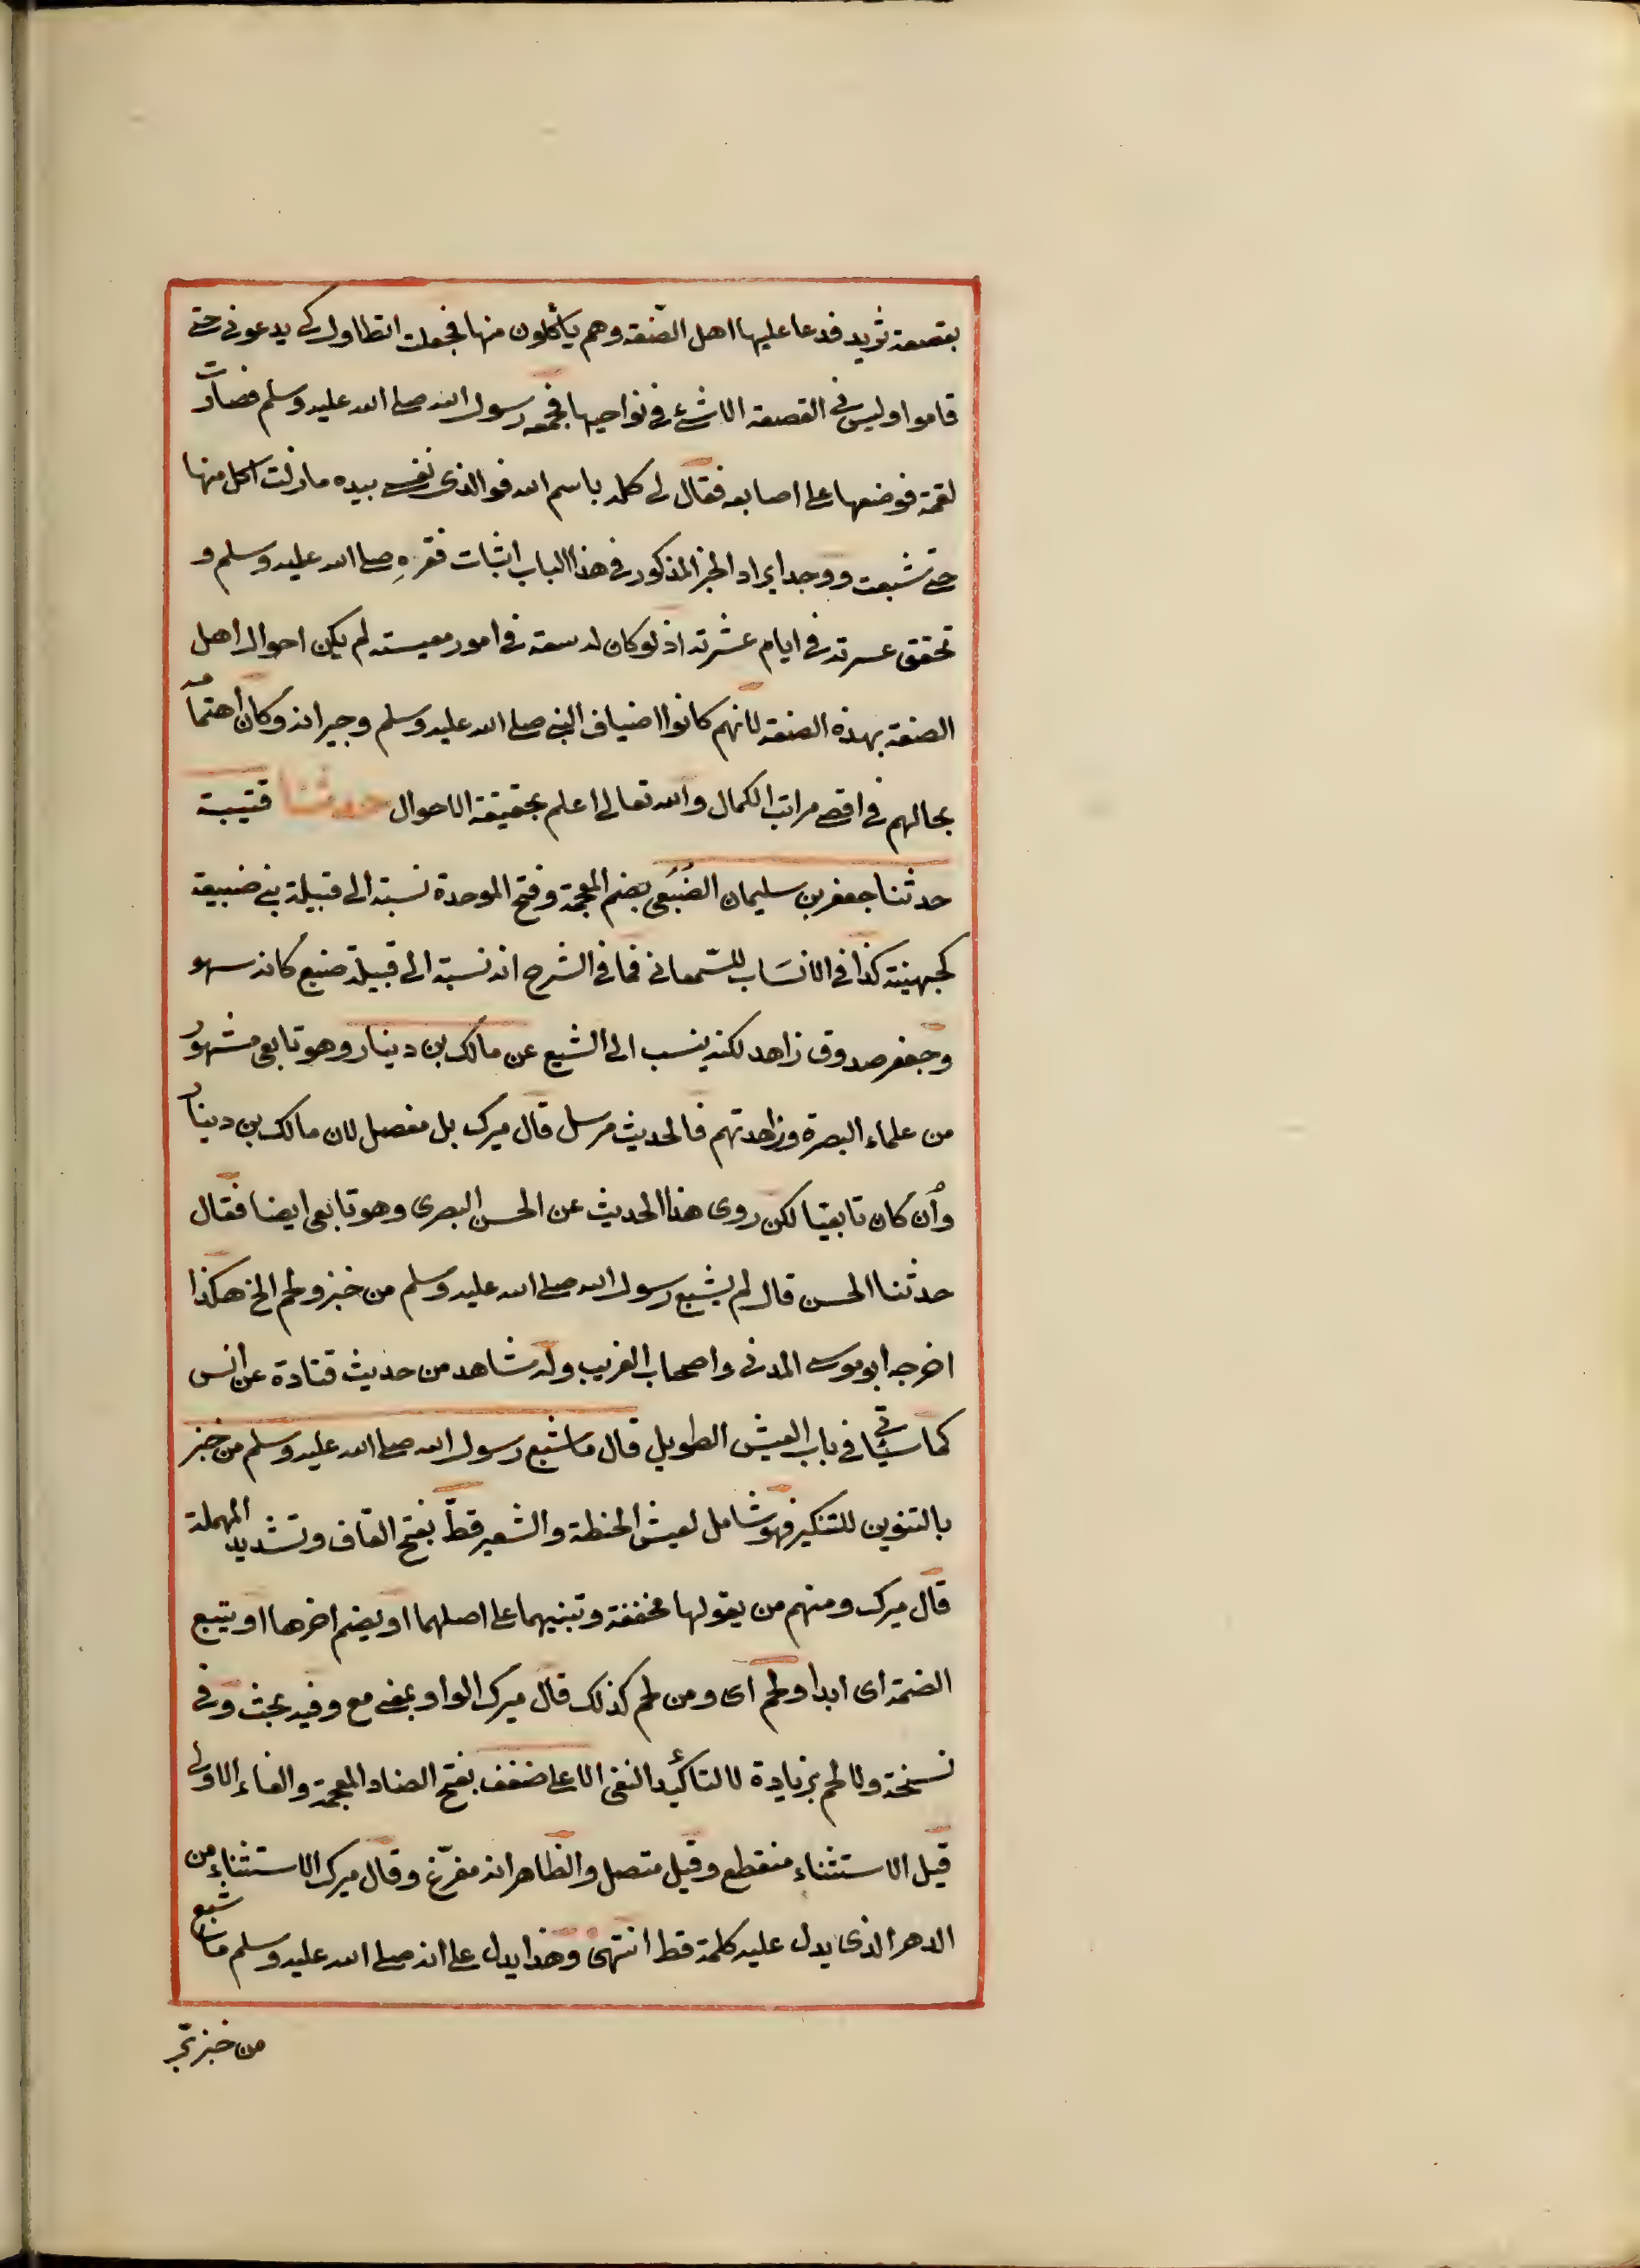 بقصعة ثريد فدعا عليها اهل الصّفة وهم يأكلون منها فجعلت اتطاول كي يدعوني حتى
قاموا وليس في القصعة الا شئ في نواحيها فجمعه رسول الله صلى الله عليه وسلم فصارت
لقمة فوضعها على اصابعه فقال لي كل باسم الله فوالذي نفسي بيده ما زلت آكل منها
حتى شبعت ووجه ايراد الخبر المذكور في هذا الباب اثبات فقره صلى الله عليه وسلم و
تحقق عسرته في ايام عشرته اذ لو كان له سعة في امور معيشته لم يكن احوال اهل
الصفة بهذه الصفة لانهم كانوا اضياف النبي صلى الله عليه وسلم وجيرانه وكان اهتمامه
بحالهم في اقصى مراتب الكمال والله تعالى اعلم بحقيقة الاحوال حدثنا قتيبة
حدثنا جعفر بن سليمان الضُبَعي بضم المعجمة وفتح الموحدة نسبة الى قبيلة بني ضبيعة
كجهينة كذا في الانسَاب للسّمعاني فما في الشرح انه نسبة الى قبيلة ضبع كانه سهو
وجعفر صدوق زاهد لكنه ينسب الى الشيع عن مالك بن دينار وهو تابعي مشهور
من علماء البصرة وزاهدتهم فالحديث مرسل قال ميرك بل معضل لان مالك بن دينار
وأن كان تابعيا لكن روى هذا الحديث عن الحسن البصري وهو تابعي ايضا فقال
حدثنا الحسن قال لم يشبع رسول الله صلى الله عليه وسلم من خبز ولحم الخ هكذا
اخرجه ابو موسى المدني واصحاب الغريب وله شاهد من حديث قتادة عن انس
كما سيأتي في باب العيش الطويل قال ما شبع رسول الله صلى الله عليه وسلم من خبز
بالتنوين للتنكير فهو شامل لعيش الحنطة والشعير قطّ بفتح القاف وتشديد المهملة
قال ميرك ومنهم من يقولها مخففة وتبنيهما على اصلهما او يضم اخرها او يتبع
الضمة اي ابدا ولحم اى ومن لحم كذلك قال ميرك الواو بمعنى مع وفيه بحث وفي
نسخة ولا لحم بزيادة لا لتاكيد النفي الا على ضفف بفتح الضاد المعجمة والفاء الاولى
قيل الاستثناء منقطع وقيل متصل والظاهر انه مفرّغ وقال ميرك الاستثناء من
الدهر الذي يدل عليه كلمة قط انتهى وهذا يدل على انه صلى الله عليه وسلم ما شبع
من خبز